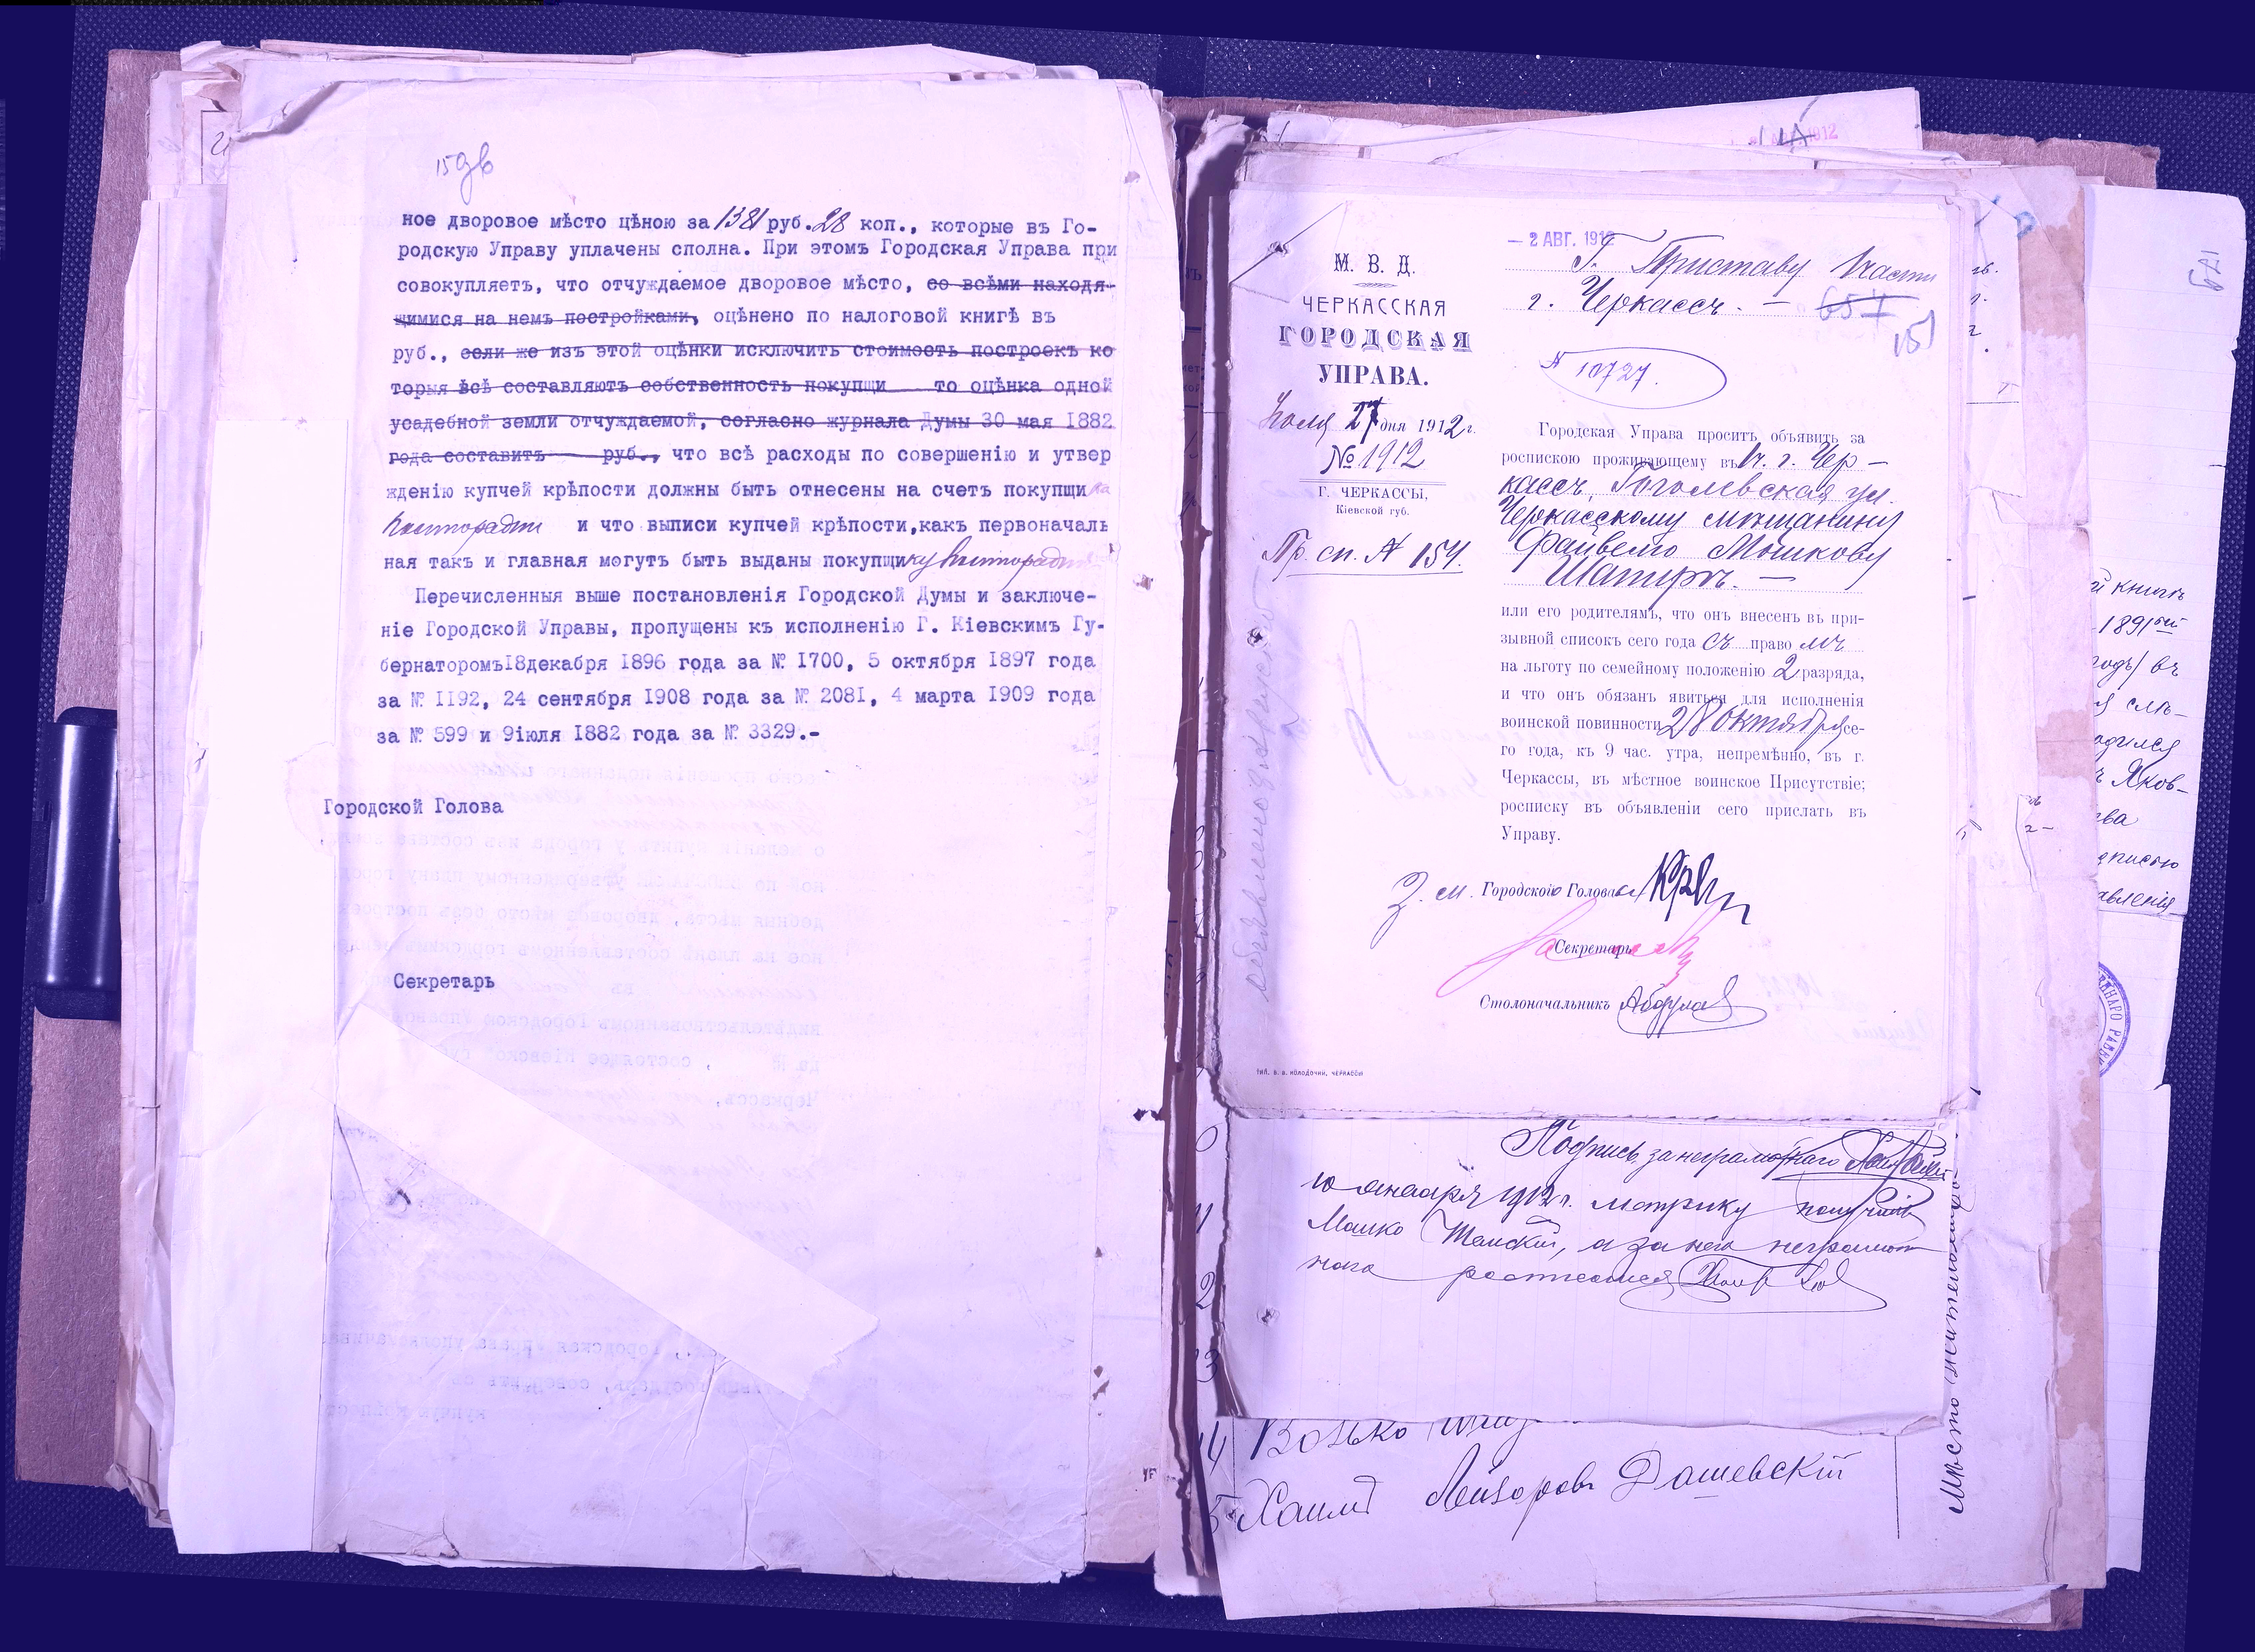 ное дворовое мѣсто цѣною за 1381 руб. 28 коп., которые въ Го-
родскую Управу уплачены сполна. При этомъ Городская Управа при
совокупляетъ, что отчуждаемое дворовое мѣсто, со всѣми находя-
щимися на немъ постройками, оцѣнено по налоговой книгѣ въ
руб., если же изъ этой оцѣнки исключить стоимость построекъ ко
торыя всѣ составляютъ собственность покупщи то оцѣнка одной
усадебной земли отчуждаемой, согласно журнала Думы 30 мая 1882
года составитъ руб., что всѣ расходы по совершенію и утвер
жденію купчей крѣпости должны быть отнесены на счетъ покупщика
и что выписи купчей крѣпости, какъ первоначаль
ная такъ и главная могутъ быть выданы покупщику
Перечисленныя выше постановленія Городской Думы и заключе-
ніе Городской Управы, пропущены къ исполненію Г. Кіевскимъ Гу-
бернаторомъ 18 декабря 1896 года за № 1700, 5 октября 1897 года
за № 1192, 24 сентября 1908 года за № 2081, 4 марта 1909 года
за № 599 и 9 іюля 1882 года за № 3329.-
Городской Голова
Секретарь
- 2 АВГ. 1912
М. В. Д.
ЧЕРКАССКАЯ
ГОРОДСКАЯ
УПРАВА.
Іюля 27 дня 1912 г.
№ 1912
Г. ЧЕРКАССЫ,
Кіевской губ.
Пр. сп. № 154.
Г. Приставу 1 части
г. Черкассъ. —
657
151
№ 10727.
Городская Управа проситъ объявить за
роспискою проживающему въ 1 ч. г. Чер-
кассъ, Гоголевская ул.
Черкасскому мѣщанину
Файвелю Мошкову
Шапиръ. —
или его родителямъ, что онъ внесенъ въ при-
зывной списокъ сего года съ право мъ
на льготу по семейному положенію 2 разряда,
и что онъ обязанъ явиться для исполненія
воинской повинности 28 октября се-
го года, къ 9 час. утра, непремѣнно, въ г.
Черкассы, въ мѣстное воинское Присутствіе;
росписку въ объявленіи сего прислать въ
Управу.
З. м. Городского Головы
Секретарь
Столоначальникъ
ТИП. В. В. КОЛОДОЧКИ, ЧЕРКАССЫ
Подпись за неграмотнаго
10 января 1912 г. метрику получилъ
Мошко а за него неграмот
наго
4 Волько
5 Хаимъ Лейзоровъ Дашевскій
Мѣсто жительство
й книгѣ
1891
въ
Яков-